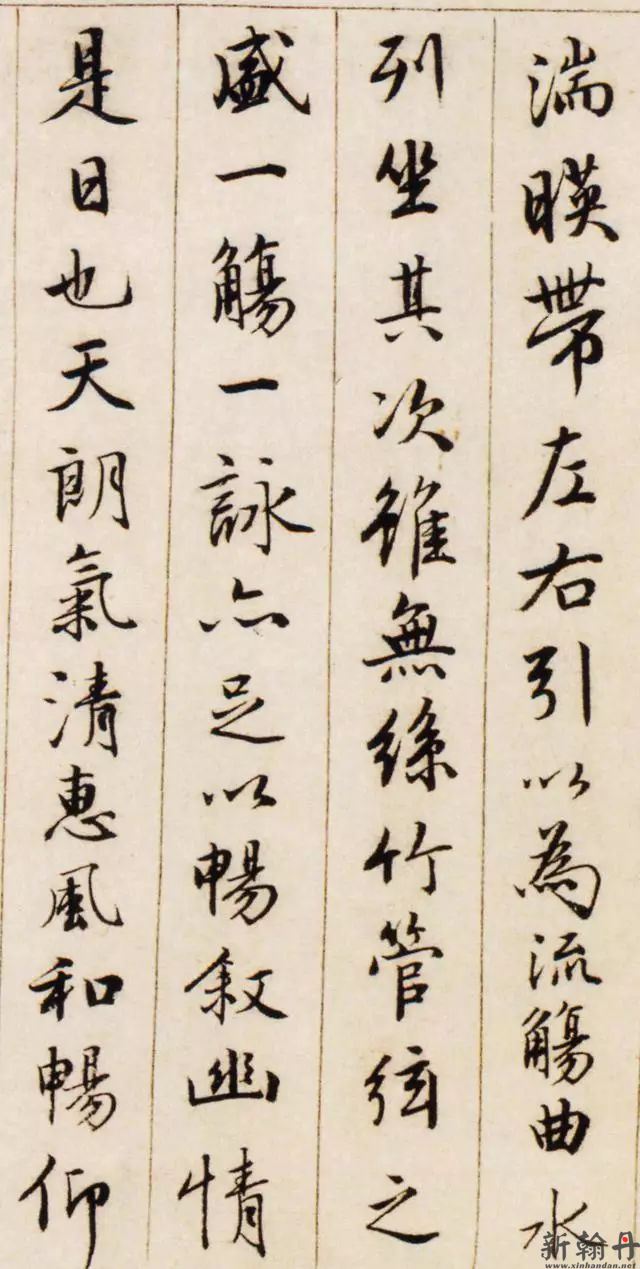 湍暎帶左右引以為流觴曲水
列坐其次雖無絲竹管弦之
盛一觴一詠亦足以暢敘幽情
是日也天朗氣清惠風和暢仰
新翰丹
www.xinhandan.net